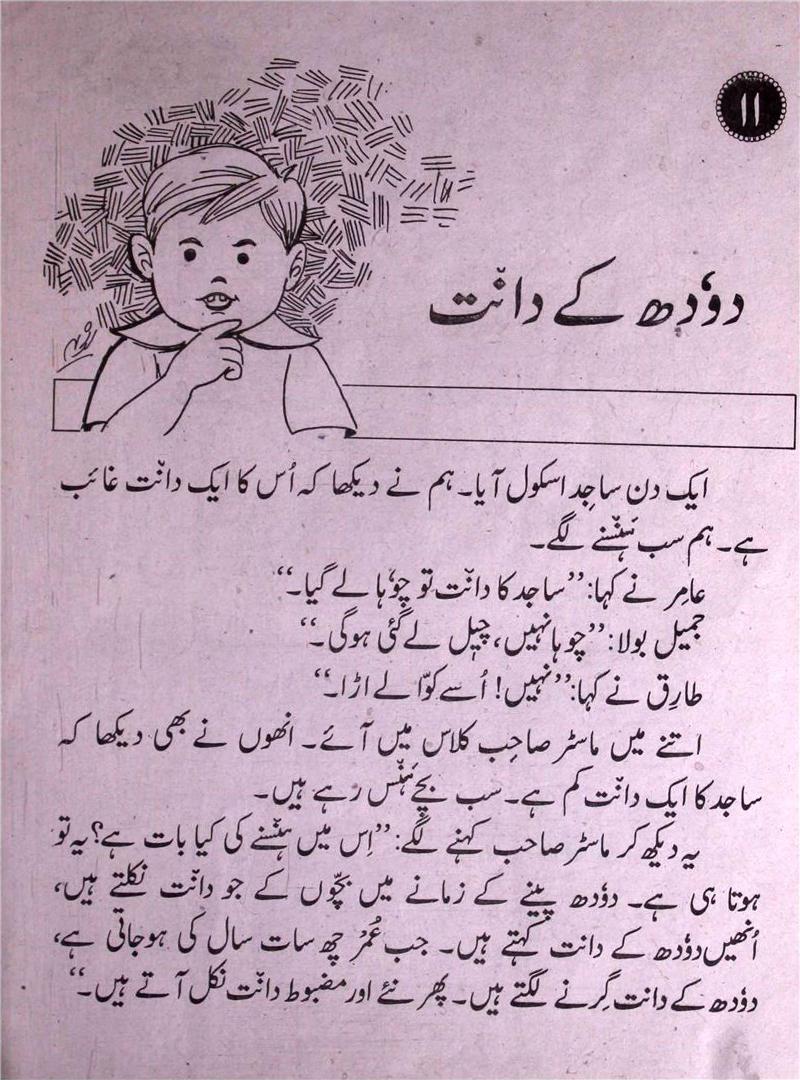 ۱۱
دوٗدھ کے دانٛت
ایک دن ساجِد اسکول آیا۔ ہم نے دیکھا کہ اُس کا ایک دانٛت غائب
ہے۔ ہم سب ہَنٛسنے لگے۔
عامِر نے کہا: ”ساجد کا دانٛت تو چوٗہا لے گیا۔“
جمیل بولا: ”چوہا نہیں، چِیل لے گئی ہوگی۔“
طارِق نے کہا: ”نہیں! اُسے کوّا لے اڑا۔“
اتنے میں ماسٹر صاحِب کلاس میں آئے۔ انھوں نے بھی دیکھا کہ
ساجد کا ایک دانٛت کم ہے۔ سب بچے ہَنٛس رہے ہیں۔
یہ دیکھ کر ماسٹر صاحب کہنے لگے: ”اِس میں ہنٛسنے کی کیا بات ہے؟ یہ تو
ہوتا ہی ہے۔ دوٗدھ پینے کے زمانے میں بچّوں کے جو دانٛت نکلتے ہیں،
اُنھیں دوٗدھ کے دانت کہتے ہیں۔ جب عُمْر چھ سات سال کی ہوجاتی ہے،
دوٗدھ کے دانت گِرنے لگتے ہیں۔ پھر نئے اور مضبوط دانٛت نکل آتے ہیں۔“